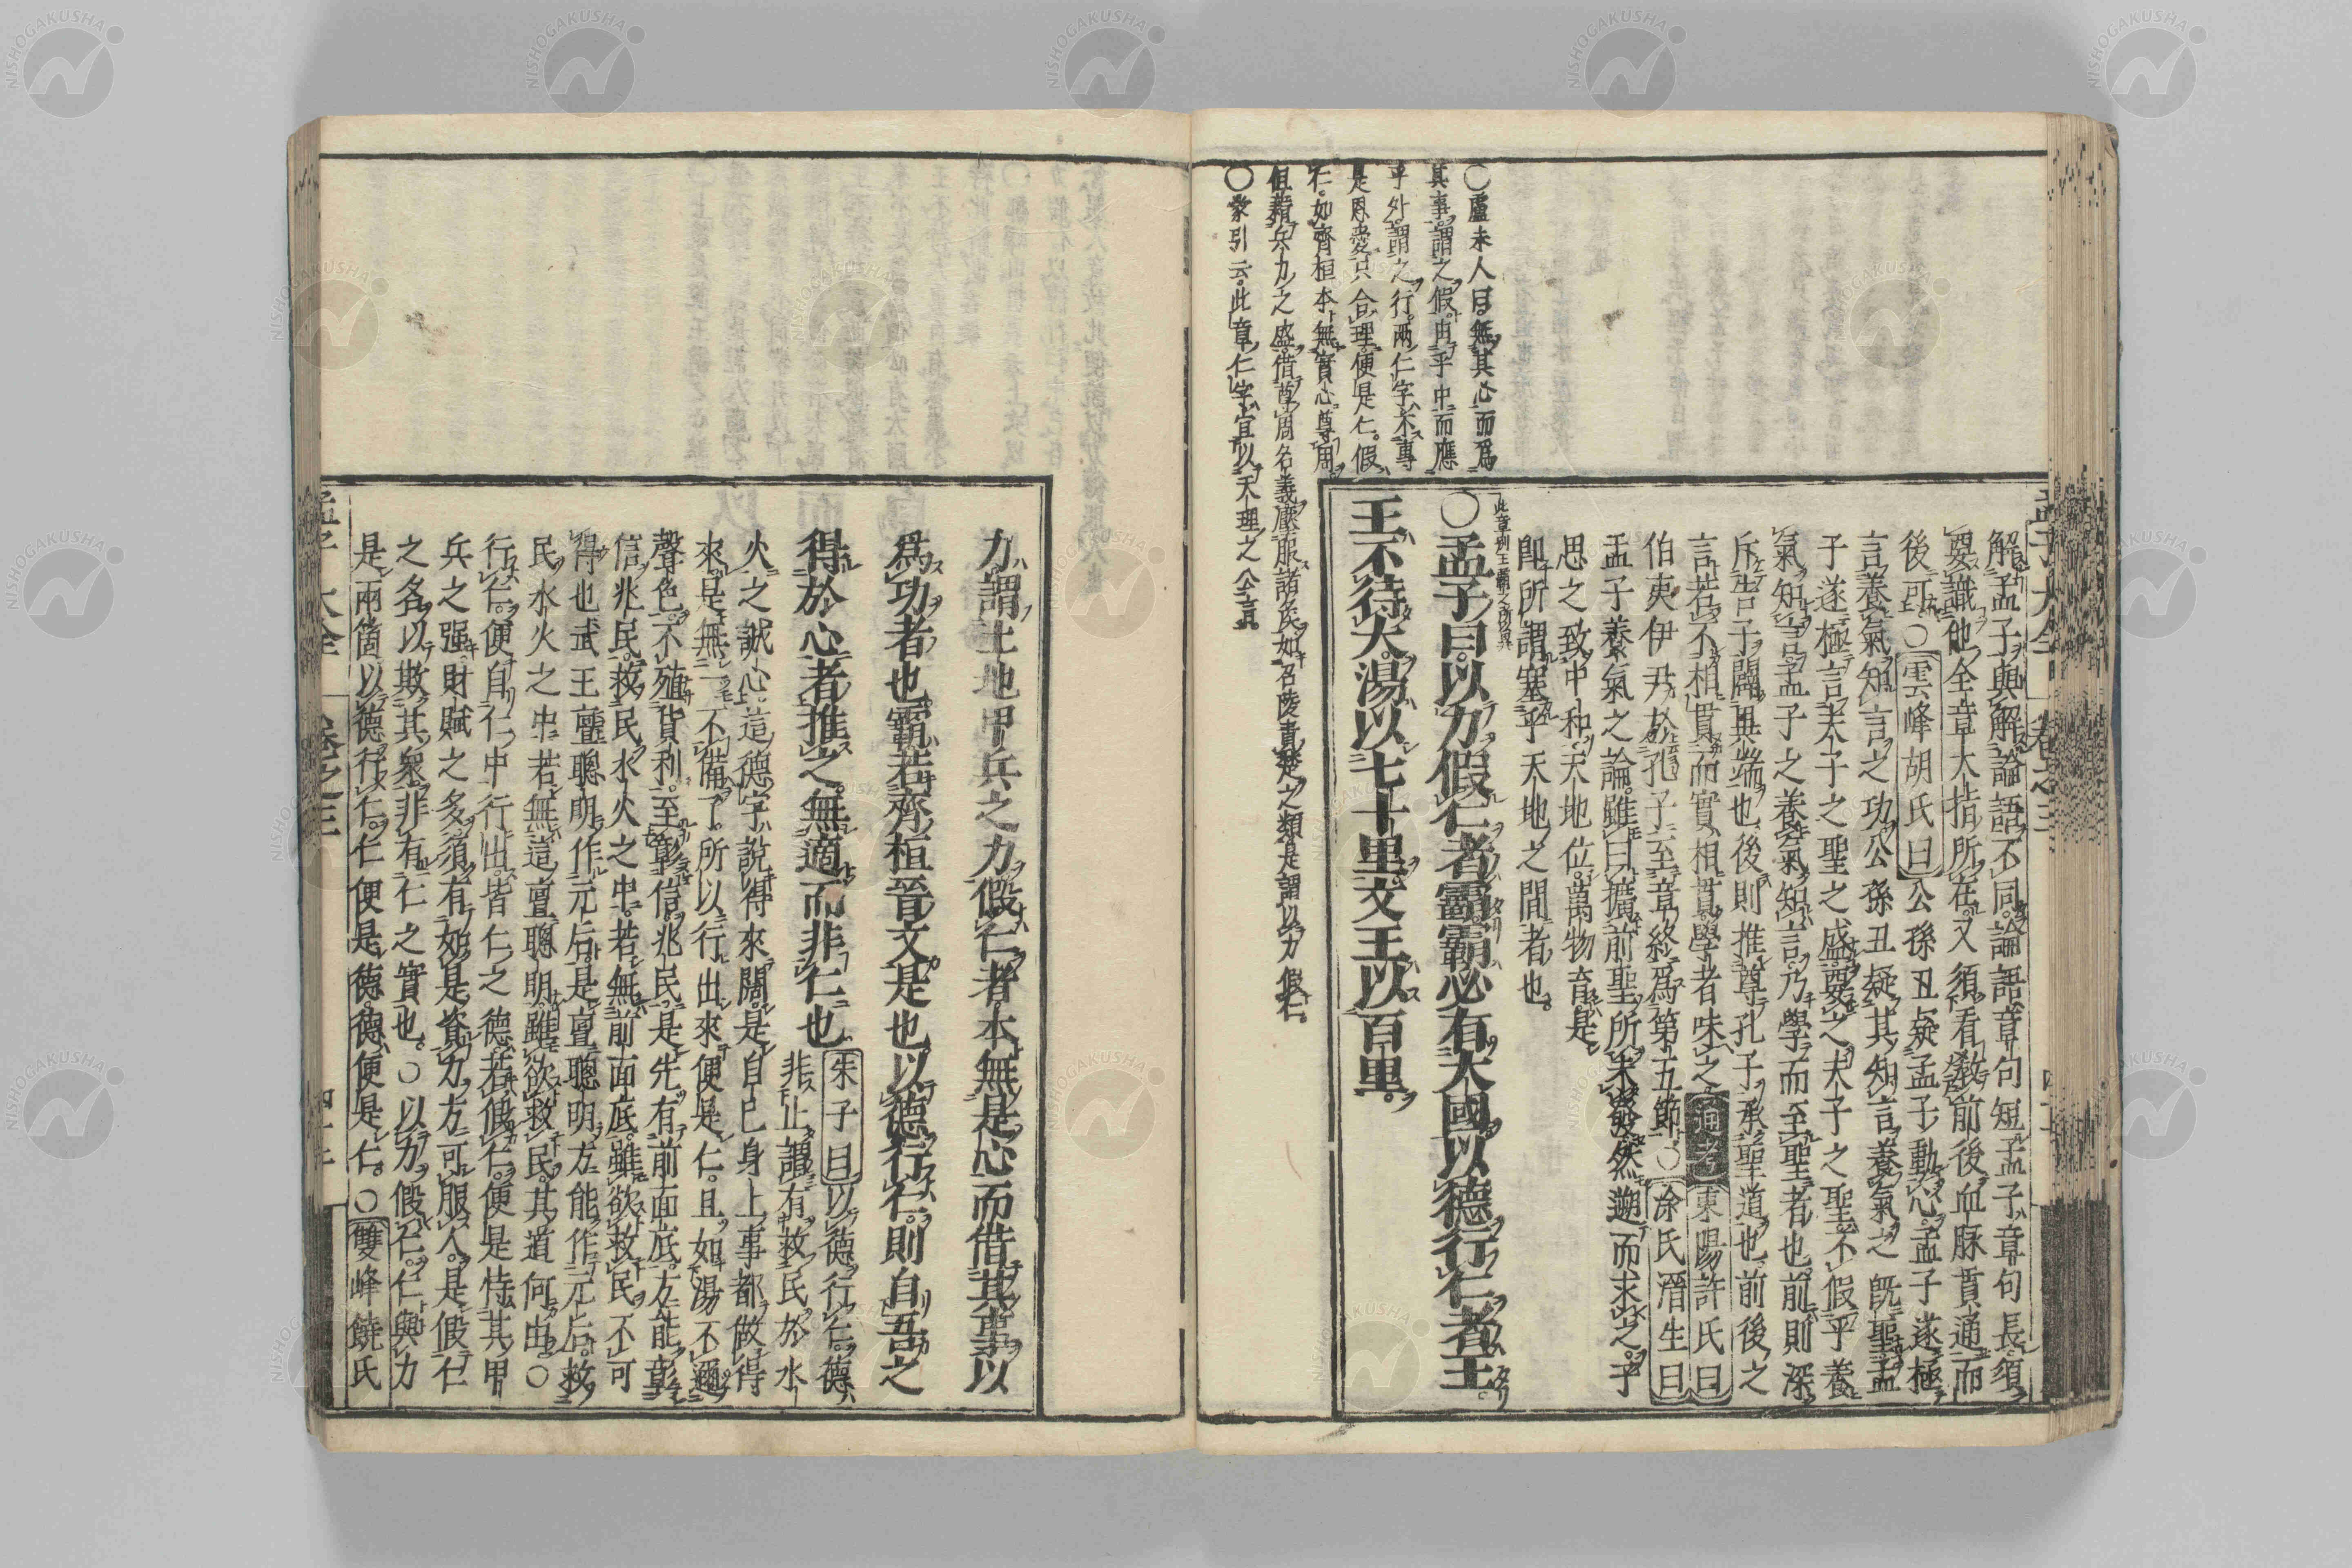 ○盧未人曰無其心而爲
其事謂之假由乎中而應
乎外謂之行兩仁字不專
是恩愛只合理便是仁假
仁如齊桓本無實心尊周
但藉兵力之盛借尊周名義壓服諸侯如召陵責楚之類是謂以力假仁
○蒙引云此章仁字宜以天理之公言
解孟子與解論語不同論語章句短孟子章句長須
要識他全章大指所在又須看教前後血脉貫通而
後可○雲峰胡氏曰公孫丑疑孟子動心孟子遂極
言養氣知言之功公孫丑疑其知言養氣之既聖孟
子遂極言夫子之聖之盛要之夫子之聖不假乎養
氣知言孟子之養氣知言乃學而至聖者也前則深
斥告子闢異端也後則推尊孔子承聖道也前後之
言若不相貫而實相貫學者味之 通考 東陽許氏曰
伯夷伊尹於孔子至章終爲第五節○涂氏溍生曰
孟子養氣之論雖曰擴前聖所未發然遡而求之子
思之致中和天地位萬物育是
卽所謂塞乎天地之間者也
此章別王霸之所以異
○孟子曰以力假仁者霸霸必有大國以德行仁者王
王不待大湯以七十里文王以百里
力謂土地甲兵之力假仁者本無是心而借其事以
爲功者也霸若齊桓晉文是也以德行仁則自吾之
得於心者推之無適而非仁也 朱子曰以德行仁德
非止謂有救民於水
火之誠心這德字說得來闊是自己身上事都做得
來是無一不備了所以行出來便是仁且如湯不邇
聲色不殖貨利至彰信兆民是先有前面底方能彰
信兆民救民水火之中若無前面底雖欲救民不可
得也武王亶聰明作元后是亶聰明方能作元后救
民水火之中若無這亶聰明雖欲救民其道何由○
行仁便自仁中行出皆仁之德若假仁便是恃其甲
兵之强財賦之多須有如是資力方可服人是假仁
之名以欺其衆非有仁之實也○以力假仁仁與力
是兩箇以德行仁仁便是德德便是仁○雙峰饒氏
孟子大全 卷之三